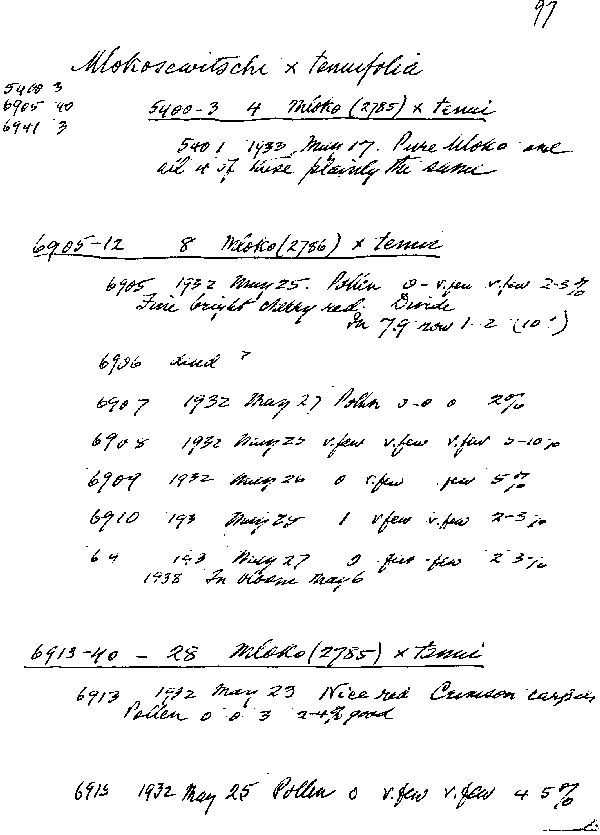 97
Mlokosewitschi x tenuifolia
5400 3
6905 40
6941 3
5400-3 4 Mloko (2785) x tenui
5401 1932 May 17. Pure Mloko and
all 4 of these plainly the same
6905-12 8 Mloko (2786) x tenui
6905 1932 May 25. Pollen 0 - v.few v.few 2-3%
Fine bright cherry red. Divide
In 79 row 1-2 (10')
6906 dead ?
6907 1932 May 27 Pollen 0-0 0 2%
6908 1932 May 25 v.few v.few v.few 5-10%
6909 1932 May 26 0 v.few few 5%
6910 193 May 28 1 v few v.few 2-3%
69 193 May 27 0 few-few 2 3%
1938 In bloom May 6
6913-40 - 28 Mloko (2785) x tenui
6913 1932 May 23 Nice red Crimson carpels
Pollen 0 0 3 2-4% good
6915 1932 May 25 Pollen 0 v.few v.few 4 5%